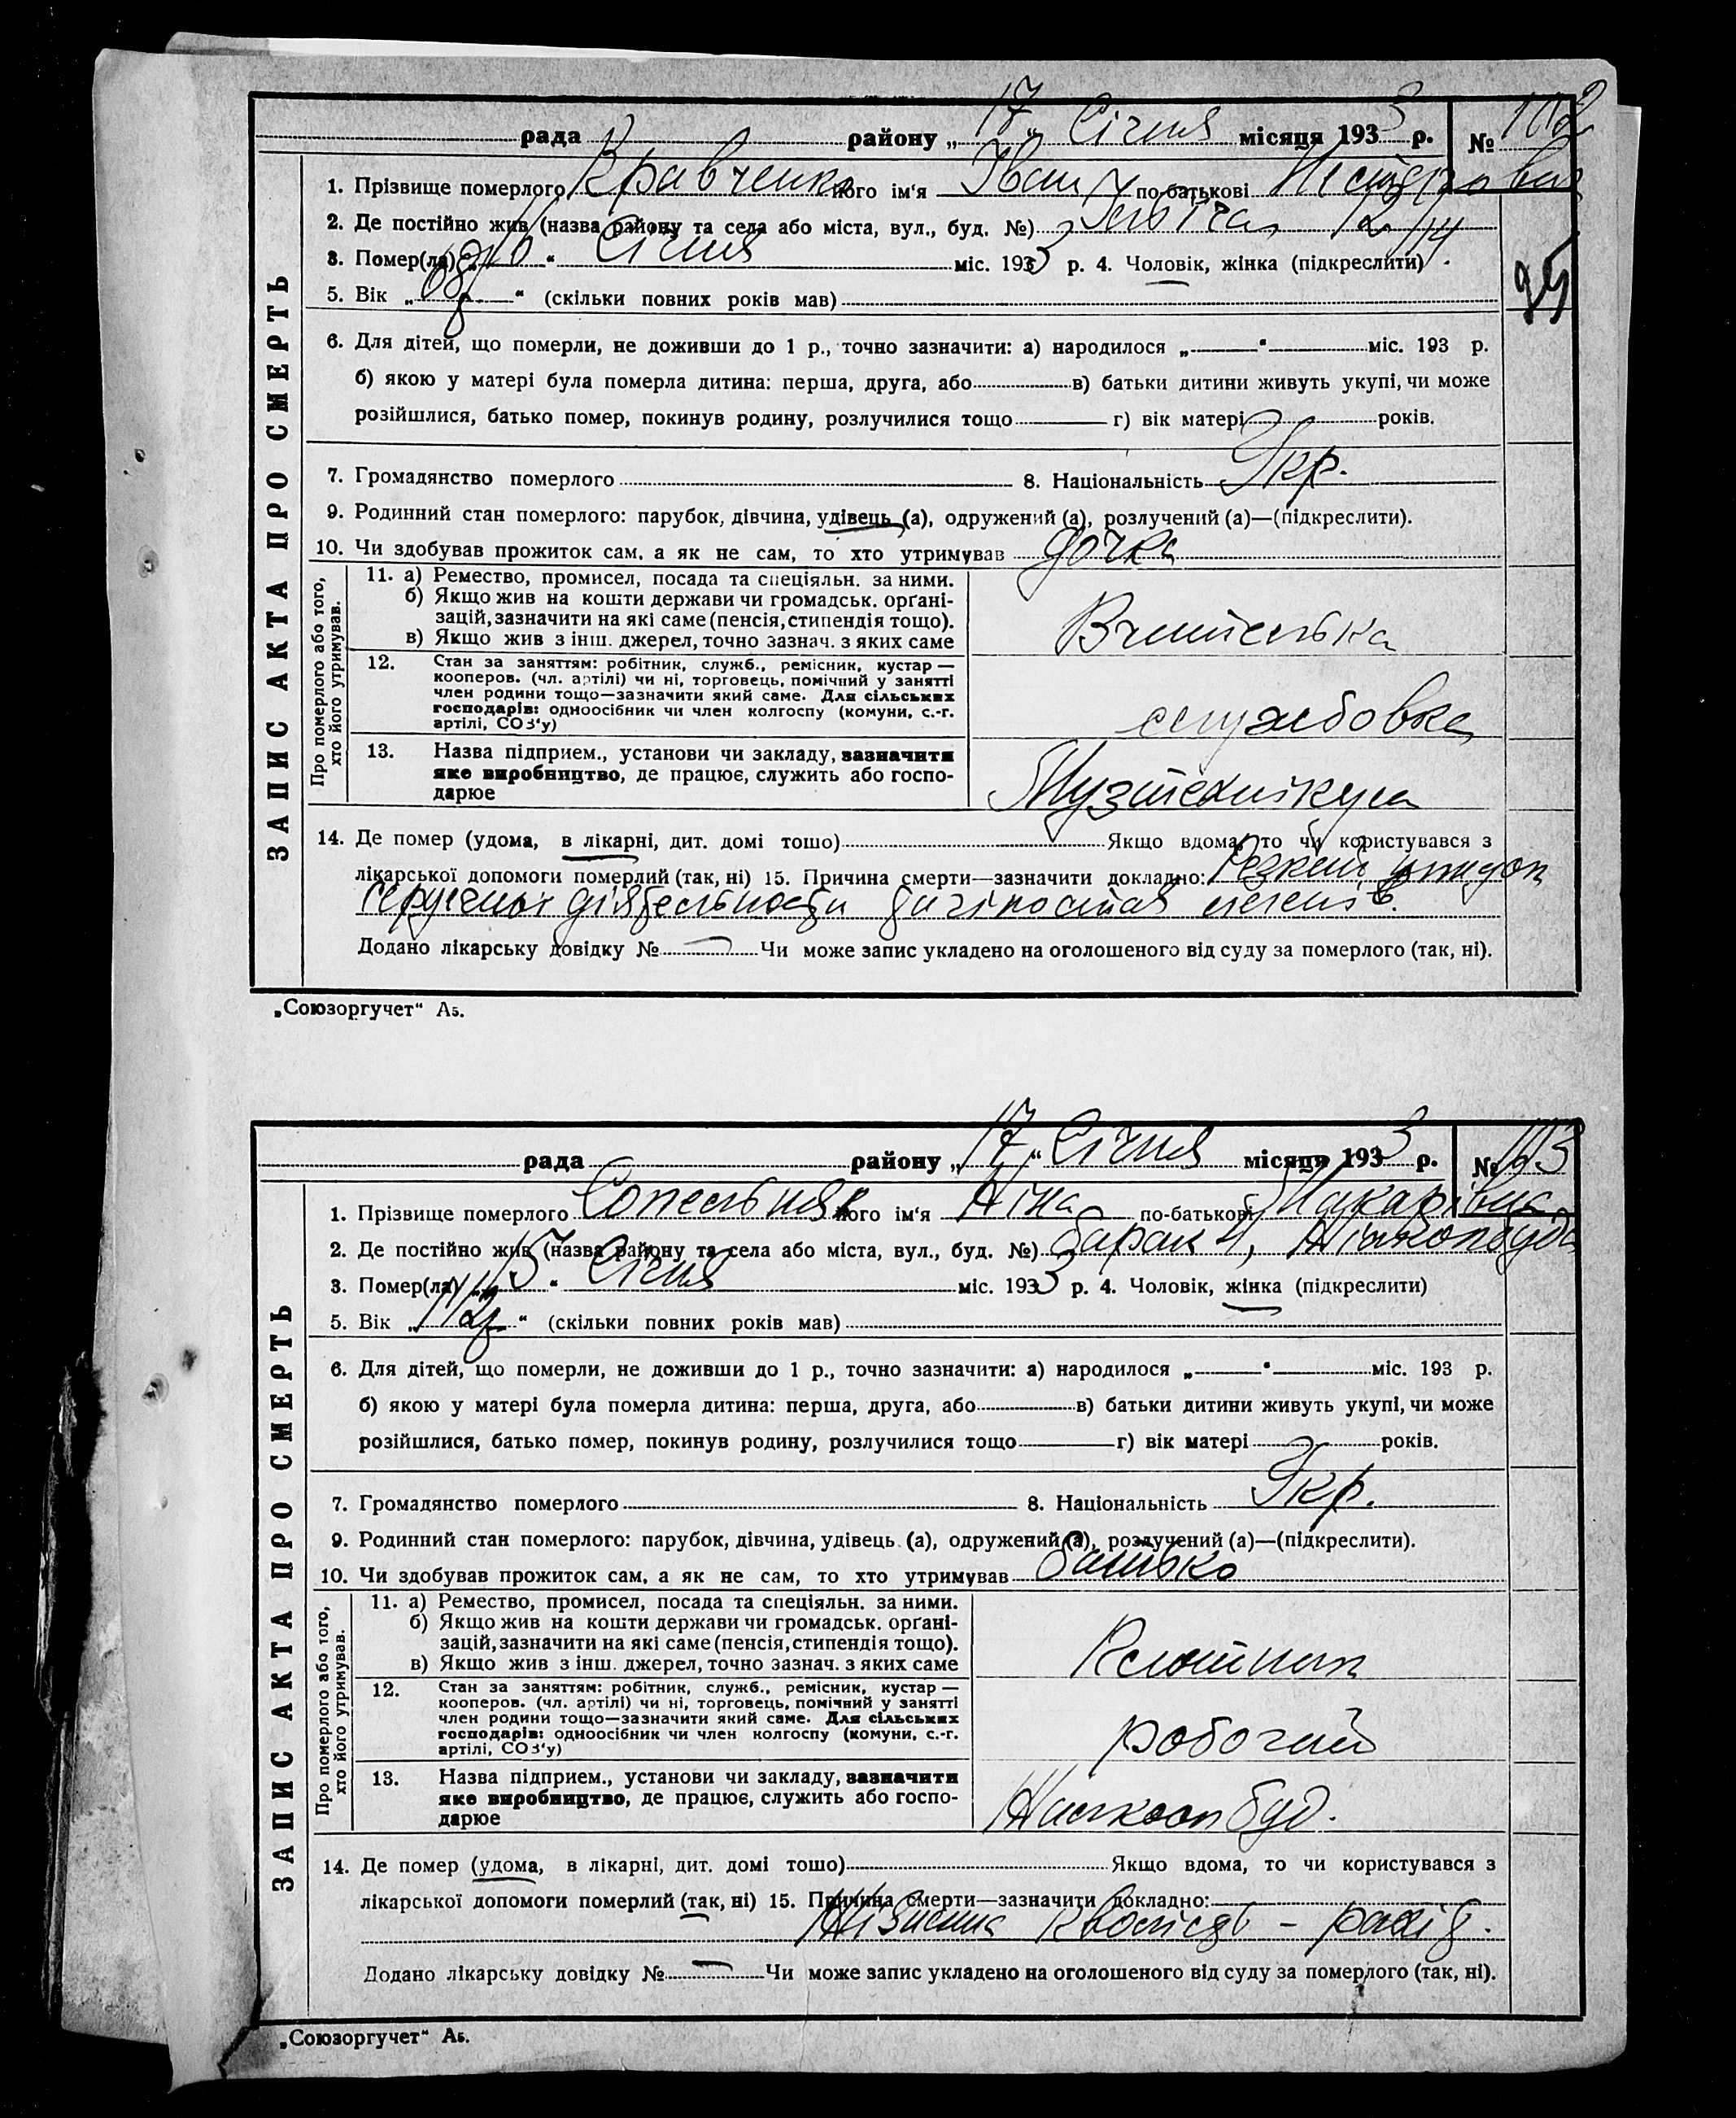 рада району „17“ Січня місяця 1933 р. № 102
1. Прізвище померлого Кравченко його ім'я Іван по-батькові
2. Де постійно жив (назва району та села або міста, вул., буд. №) 12/14
3. Помер(ла) „10“ Січня міс. 1933 р. 4. Чоловік, жінка (підкреслити)
95
5. Вік „68“ (скільки повних років мав)
6. Для дітей, що померли, не доживши до 1 р., точно зазначити: а) народилося „ “ міс. 193 р.
б) якою у матері була померла дитина: перша, друга, або в) батьки дитини живуть укупі, чи може
розійшлися, батько помер, покинув родину, розлучилися тощо г) вік матері років.
7. Громадянство померлого 8. Національність Укр.
9. Родинний стан померлого: парубок, дівчина, удівець (а), одружений (а), розлучений (а)—(підкреслити).
10. Чи здобував прожиток сам, а як не сам, то хто утримував дочка
ЗАПИС АКТА ПРО СМЕРТЬ
Про померлого або того, хто його утримував.
11. а) Ремество, промисел, посада та спеціяльн. за ними.
б) Якщо жив на кошти держави чи громадськ. орґані-
зацій, зазначити на які саме (пенсія, стипендія тощо).
в) Якщо жив з інш. джерел, точно зазнач. з яких саме
Вчителька
12. Стан за заняттям: робітник, служб., ремісник, кустар —
кооперов. (чл. артілі) чи ні, торговець, помічний у занятті
член родини тощо—зазначити який саме. Для сільських
господарів: одноосібник чи член колгоспу (комуни, с.-г.
артілі, СОЗ'у)
службовка
13. Назва підприєм., установи чи закладу, зазначити
яке виробництво, де працює, служить або госпо-
дарює
Музтехнікум
14. Де помер (удома, в лікарні, дит. домі тощо) Якщо вдома, то чи користувався з
лікарської допомоги померлий (так, ні) 15. Причина смерти—зазначити докладно:
Додано лікарську довідку № Чи може запис укладено на оголошеного від суду за померлого (так, ні).
„Союзоргучет“ А5.
рада району „17“ Січня місяця 1933 р. № 103
1. Прізвище померлого Сопельняк його ім'я Ніна по-батькові Макарівна
2. Де постійно жив (назва району та села або міста, вул., буд. №) барак 4,
3. Помер(ла) „15“ Січня міс. 1933 р. 4. Чоловік, жінка (підкреслити)
5. Вік „ “ (скільки повних років мав)
6. Для дітей, що померли, не доживши до 1 р., точно зазначити: а) народилося „ “ міс. 193 р.
б) якою у матері була померла дитина: перша, друга, або в) батьки дитини живуть укупі, чи може
розійшлися, батько помер, покинув родину, розлучилися тощо г) вік матері років.
7. Громадянство померлого 8. Національність Укр.
9. Родинний стан померлого: парубок, дівчина, удівець (а), одружений (а), розлучений (а)—(підкреслити).
10. Чи здобував прожиток сам, а як не сам, то хто утримував батько
ЗАПИС АКТА ПРО СМЕРТЬ
Про померлого або того, хто його утримував.
11. а) Ремество, промисел, посада та спеціяльн. за ними.
б) Якщо жив на кошти держави чи громадськ. орґані-
зацій, зазначити на які саме (пенсія, стипендія тощо).
в) Якщо жив з інш. джерел, точно зазнач. з яких саме
12. Стан за заняттям: робітник, служб., ремісник, кустар —
кооперов. (чл. артілі) чи ні, торговець, помічний у занятті
член родини тощо—зазначити який саме. Для сільських
господарів: одноосібник чи член колгоспу (комуни, с.-г.
артілі, СОЗ'у)
робочий
13. Назва підприєм., установи чи закладу, зазначити
яке виробництво, де працює, служить або госпо-
дарює
14. Де помер (удома, в лікарні, дит. домі тощо) Якщо вдома, то чи користувався з
лікарської допомоги померлий (так, ні) 15. Причина смерти—зазначити докладно:
рахіт.
Додано лікарську довідку № Чи може запис укладено на оголошеного від суду за померлого (так, ні).
„Союзоргучет“ А5.